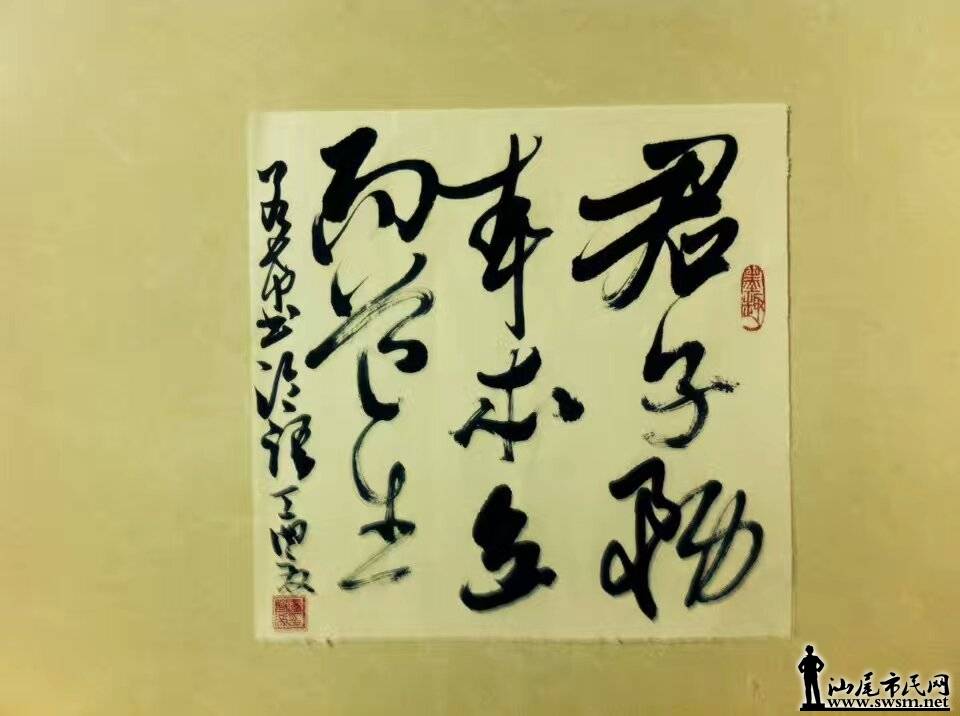 墨趣
君子務
本本立
而道生
书论语
汕尾市民网
www.swsm.net